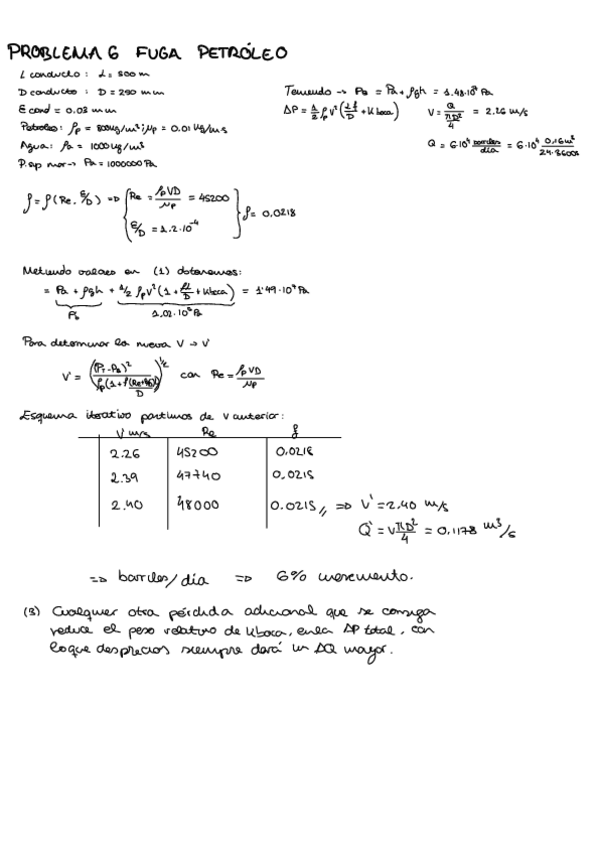 PROBLEMA 6 FUGA PETRÓLEO
L conducto : L = 800 m
D conducto : D = 250 mm
E cond = 0.03 mm
Petroleo: ρp = 800 kg/m³; μp = 0.01 kg/ms
Agua: ρa = 1000 kg/m³
P.sup mar → Pa = 1000000 Pa
Teniendo → PB = Pa + ρgh = 1.48·10⁷ Pa
ΔP = 1/2 ρpV² (Lf/D + Kboca) V = Q/(πD²/4) = 2.26 m/s
Q = 6·10⁴ barriles/día = 6·10⁴ 0.16m³/24·3600s
f = f(Re, E/D) ⇒ { Re = ρpVD/μp = 45200
E/D = 1.2·10⁻⁴ } f = 0.0218
Metiendo valores en (1) obtenemos:
= Pa + ρgh + 1/2 ρpV² (1 + fL/D + Kboca) = 1'49·10⁷ Pa
PB 1.02·10⁵ Pa
Para determinar la nueva V → V'
V' = ((PT - PB)2/ρp(1 + f(Re, E/D)L/D))^1/2 con Re = ρpVD/μp
Esquema iterativo partimos de V anterior:
V m/s Re f
2.26 45200 0.0218
2.39 47740 0.0215
2.40 48000 0.0215 ⇒ V' = 2.40 m/s
Q' = V πD²/4 = 0.1178 m³/s
⇒ barriles/día ⇒ 6% incremento.
(3) Cualquier otra pérdida adicional que se consiga
reduce el peso relativo de Kboca, en la ΔP total, con
lo que despreciarlos siempre dará un ΔQ mayor.